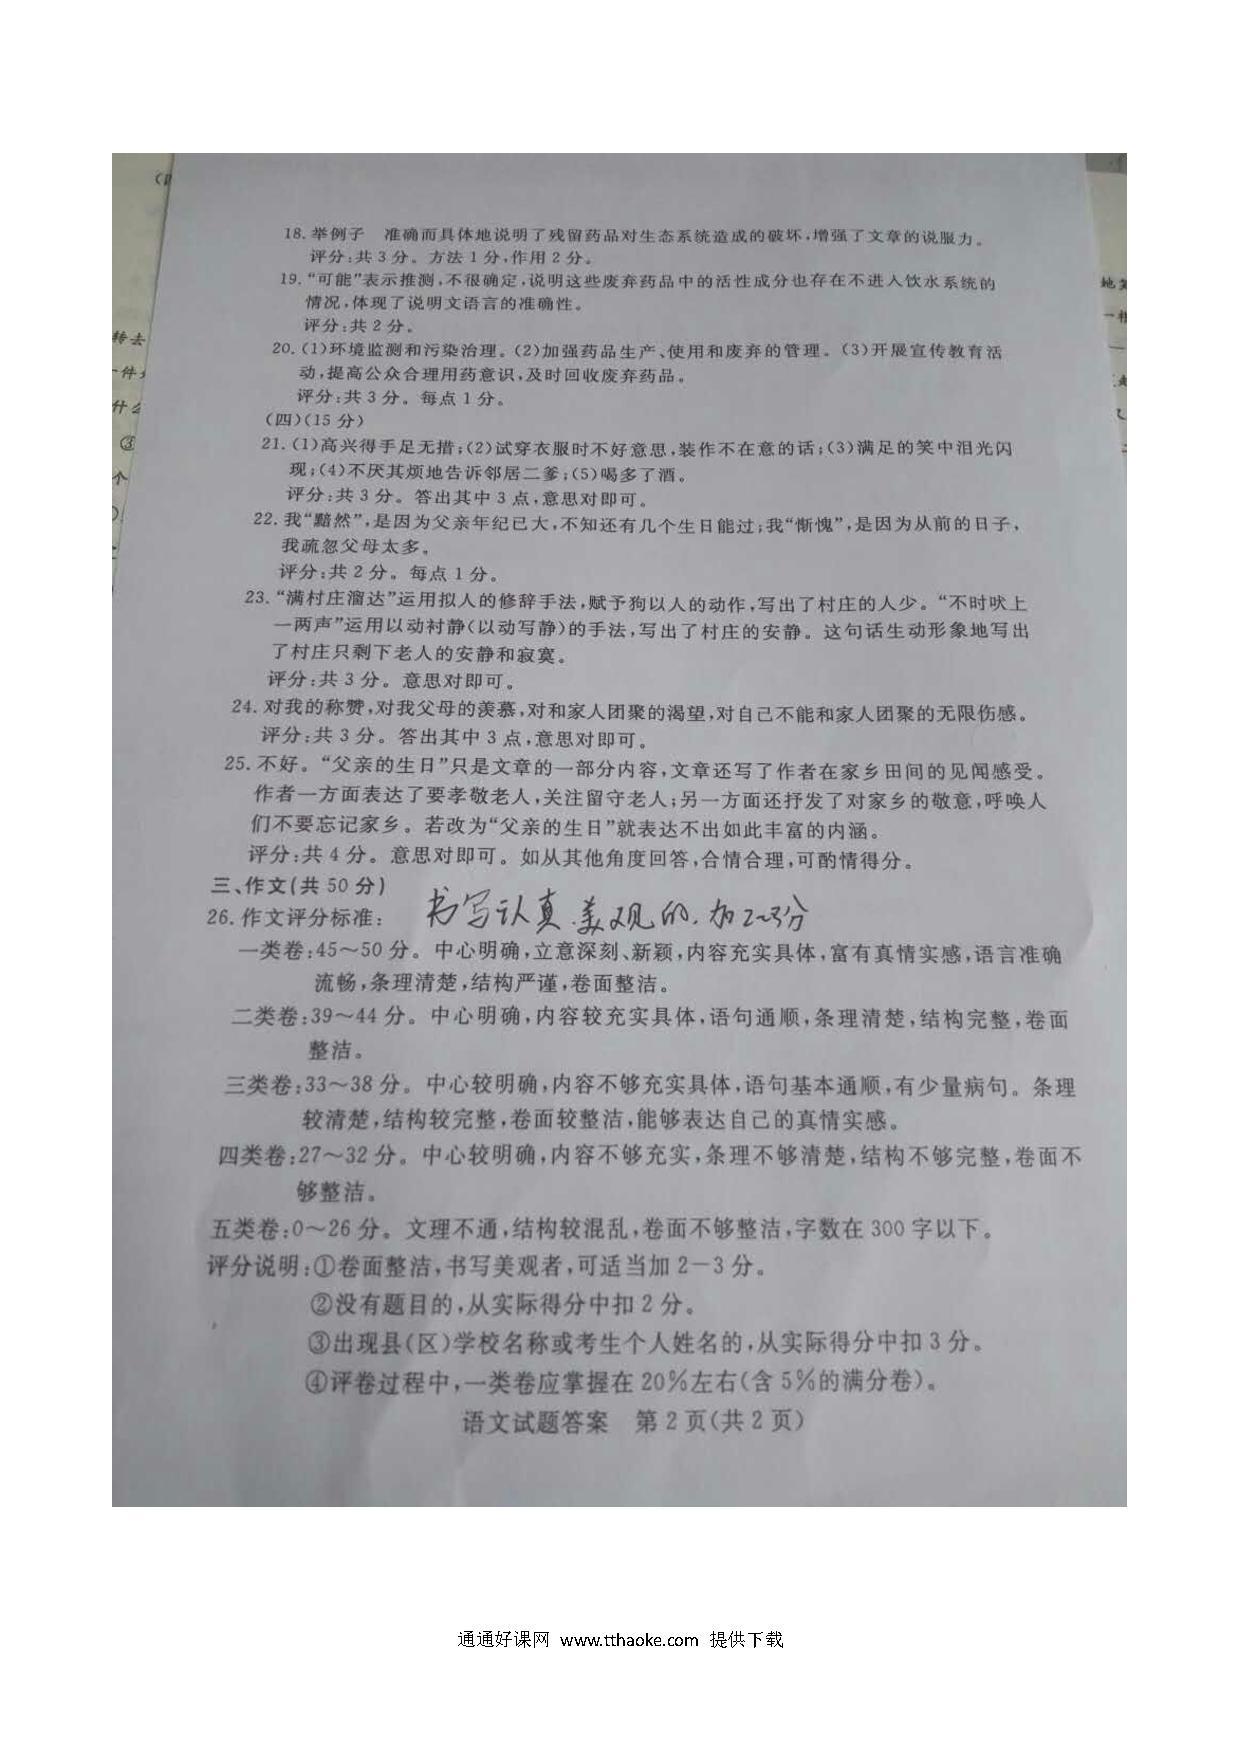 18. 举例子 准确而具体地说明了残留药品对生态系统造成的破坏,增强了文章的说服力。
评分:共 3 分。方法 1 分,作用 2 分。
19. “可能”表示推测,不很确定,说明这些废弃药品中的活性成分也存在不进入饮水系统的
情况,体现了说明文语言的准确性。
评分:共 2 分。
20. (1)环境监测和污染治理。(2)加强药品生产、使用和废弃的管理。(3)开展宣传教育活
动,提高公众合理用药意识,及时回收废弃药品。
评分:共 3 分。每点 1 分。
(四)(15 分)
21. (1)高兴得手足无措;(2)试穿衣服时不好意思,装作不在意的话;(3)满足的笑中泪光闪
现;(4)不厌其烦地告诉邻居二爹;(5)喝多了酒。
评分:共 3 分。答出其中 3 点,意思对即可。
22. 我“黯然”,是因为父亲年纪已大,不知还有几个生日能过;我“惭愧”,是因为从前的日子,
我疏忽父母太多。
评分:共 2 分。每点 1 分。
23. “满村庄溜达”运用拟人的修辞手法,赋予狗以人的动作,写出了村庄的人少。“不时吠上
一两声”运用以动衬静(以动写静)的手法,写出了村庄的安静。这句话生动形象地写出
了村庄只剩下老人的安静和寂寞。
评分:共 3 分。意思对即可。
24. 对我的称赞,对我父母的羡慕,对和家人团聚的渴望,对自己不能和家人团聚的无限伤感。
评分:共 3 分。答出其中 3 点,意思对即可。
25. 不好。“父亲的生日”只是文章的一部分内容,文章还写了作者在家乡田间的见闻感受。
作者一方面表达了要孝敬老人,关注留守老人;另一方面还抒发了对家乡的敬意,呼唤人
们不要忘记家乡。若改为“父亲的生日”就表达不出如此丰富的内涵。
评分:共 4 分。意思对即可。如从其他角度回答,合情合理,可酌情得分。
三、作文(共 50 分)
26. 作文评分标准: 书写认真.美观的.加2~3分
一类卷:45～50 分。中心明确,立意深刻、新颖,内容充实具体,富有真情实感,语言准确
流畅,条理清楚,结构严谨,卷面整洁。
二类卷:39～44 分。中心明确,内容较充实具体,语句通顺,条理清楚,结构完整,卷面
整洁。
三类卷:33～38 分。中心较明确,内容不够充实具体,语句基本通顺,有少量病句。条理
较清楚,结构较完整,卷面较整洁,能够表达自己的真情实感。
四类卷:27～32 分。中心较明确,内容不够充实,条理不够清楚,结构不够完整,卷面不
够整洁。
五类卷:0～26 分。文理不通,结构较混乱,卷面不够整洁,字数在 300 字以下。
评分说明:①卷面整洁,书写美观者,可适当加 2－3 分。
②没有题目的,从实际得分中扣 2 分。
③出现县(区)学校名称或考生个人姓名的,从实际得分中扣 3 分。
④评卷过程中,一类卷应掌握在 20%左右(含 5%的满分卷)。
语文试题答案 第 2 页(共 2 页)
通通好课网 www.tthaoke.com 提供下载